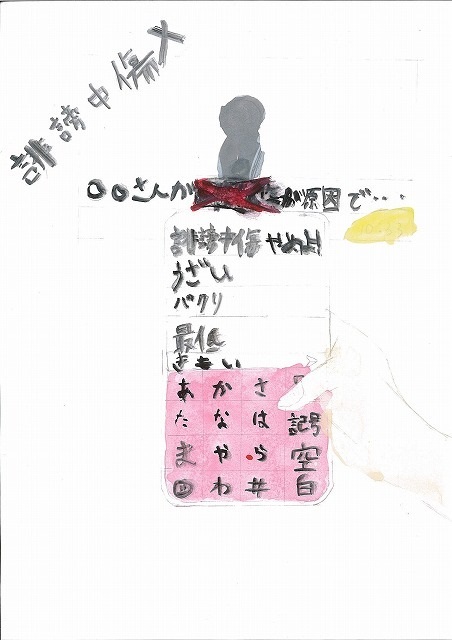 誹謗中傷×
〇〇さんが
が原因で・・・
誹謗中傷やめよう
うざい
パクリ
最低
きもい
あ か さ
た な は 記号
ま や ら 空白
わ #